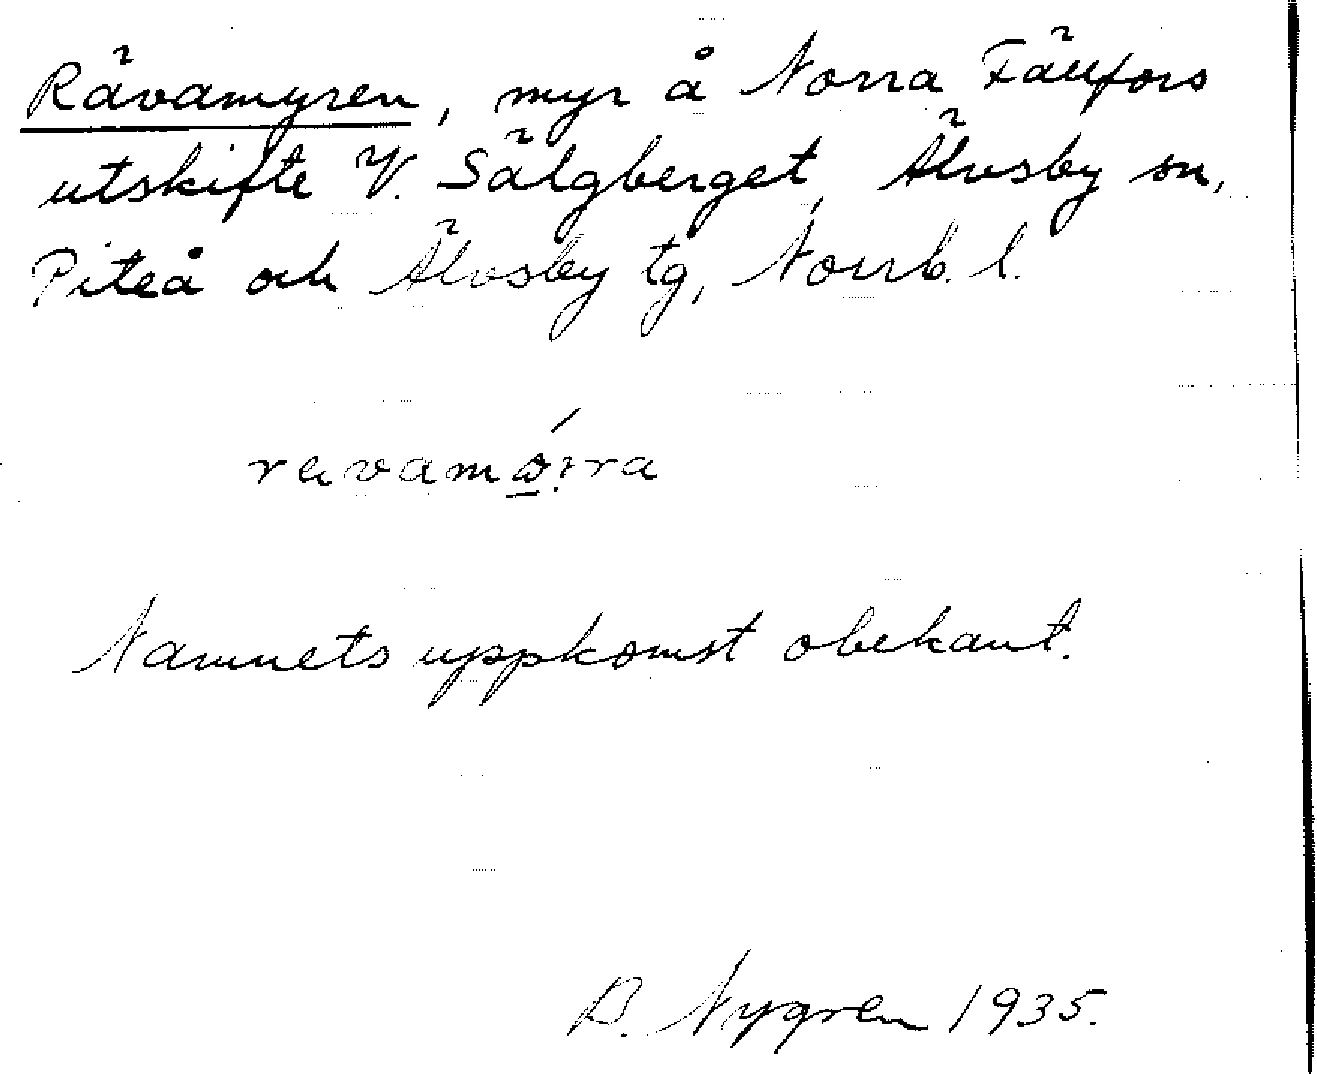 Rävamyren, myr å Norra Fällfors
utskifte V. Sälgberget, Älvsby sn,
Piteå och Älvsby tg, Norrb. l.
Namnets uppkomst obekant.
B. Nygren 1935.